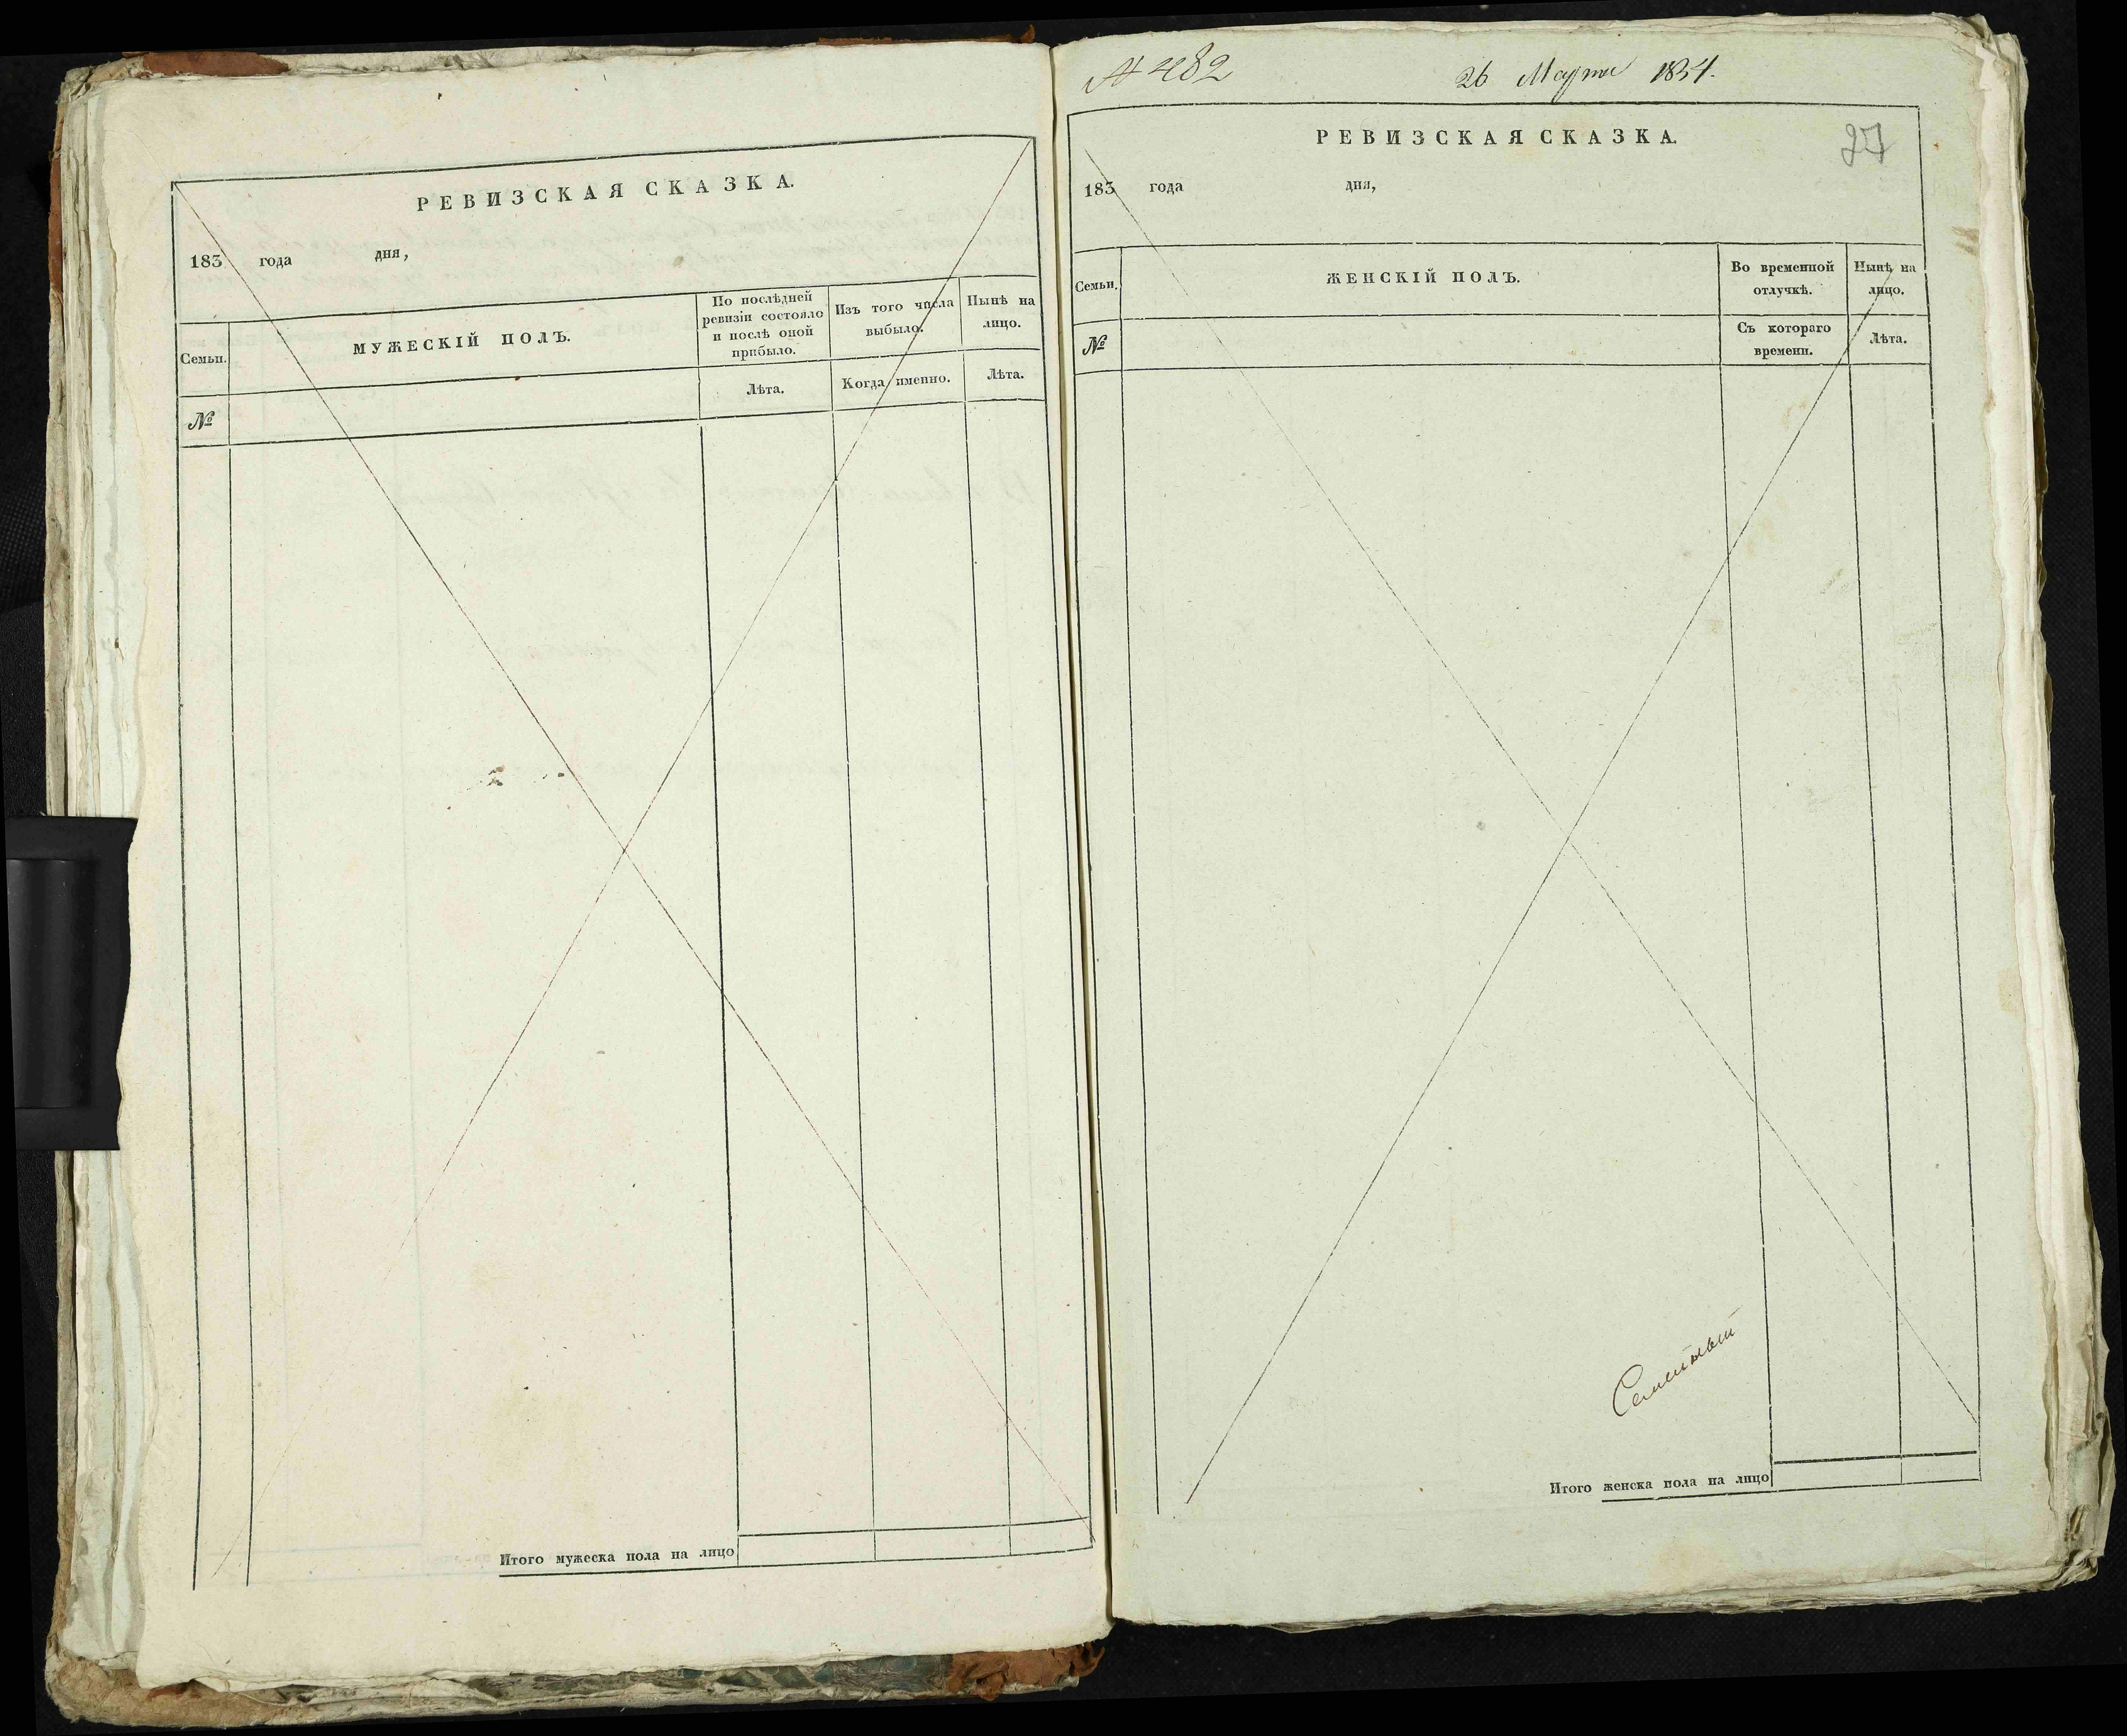 РЕВИЗСКАЯ СКАЗКА.
183 года дня,
Семьи.
МУЖЕСКІЙ ПОЛЪ.
По послѣдней
ревизіи состояло
и послѣ оной
прибыло.
Изъ того числа
выбыло.
Нынѣ на
лицо.
№
Лѣта.
Когда именно.
Лѣта.
Итого мужеска пола на лицо
№ 482
26 Марта 1834.
27
РЕВИЗСКАЯ СКАЗКА.
183 года дня,
Семьи.
ЖЕНСКІЙ ПОЛЪ.
Во временной
отлучкѣ.
Нынѣ на
лицо.
№
Съ котораго
времени.
Лѣта.
Итого женска пола на лицо